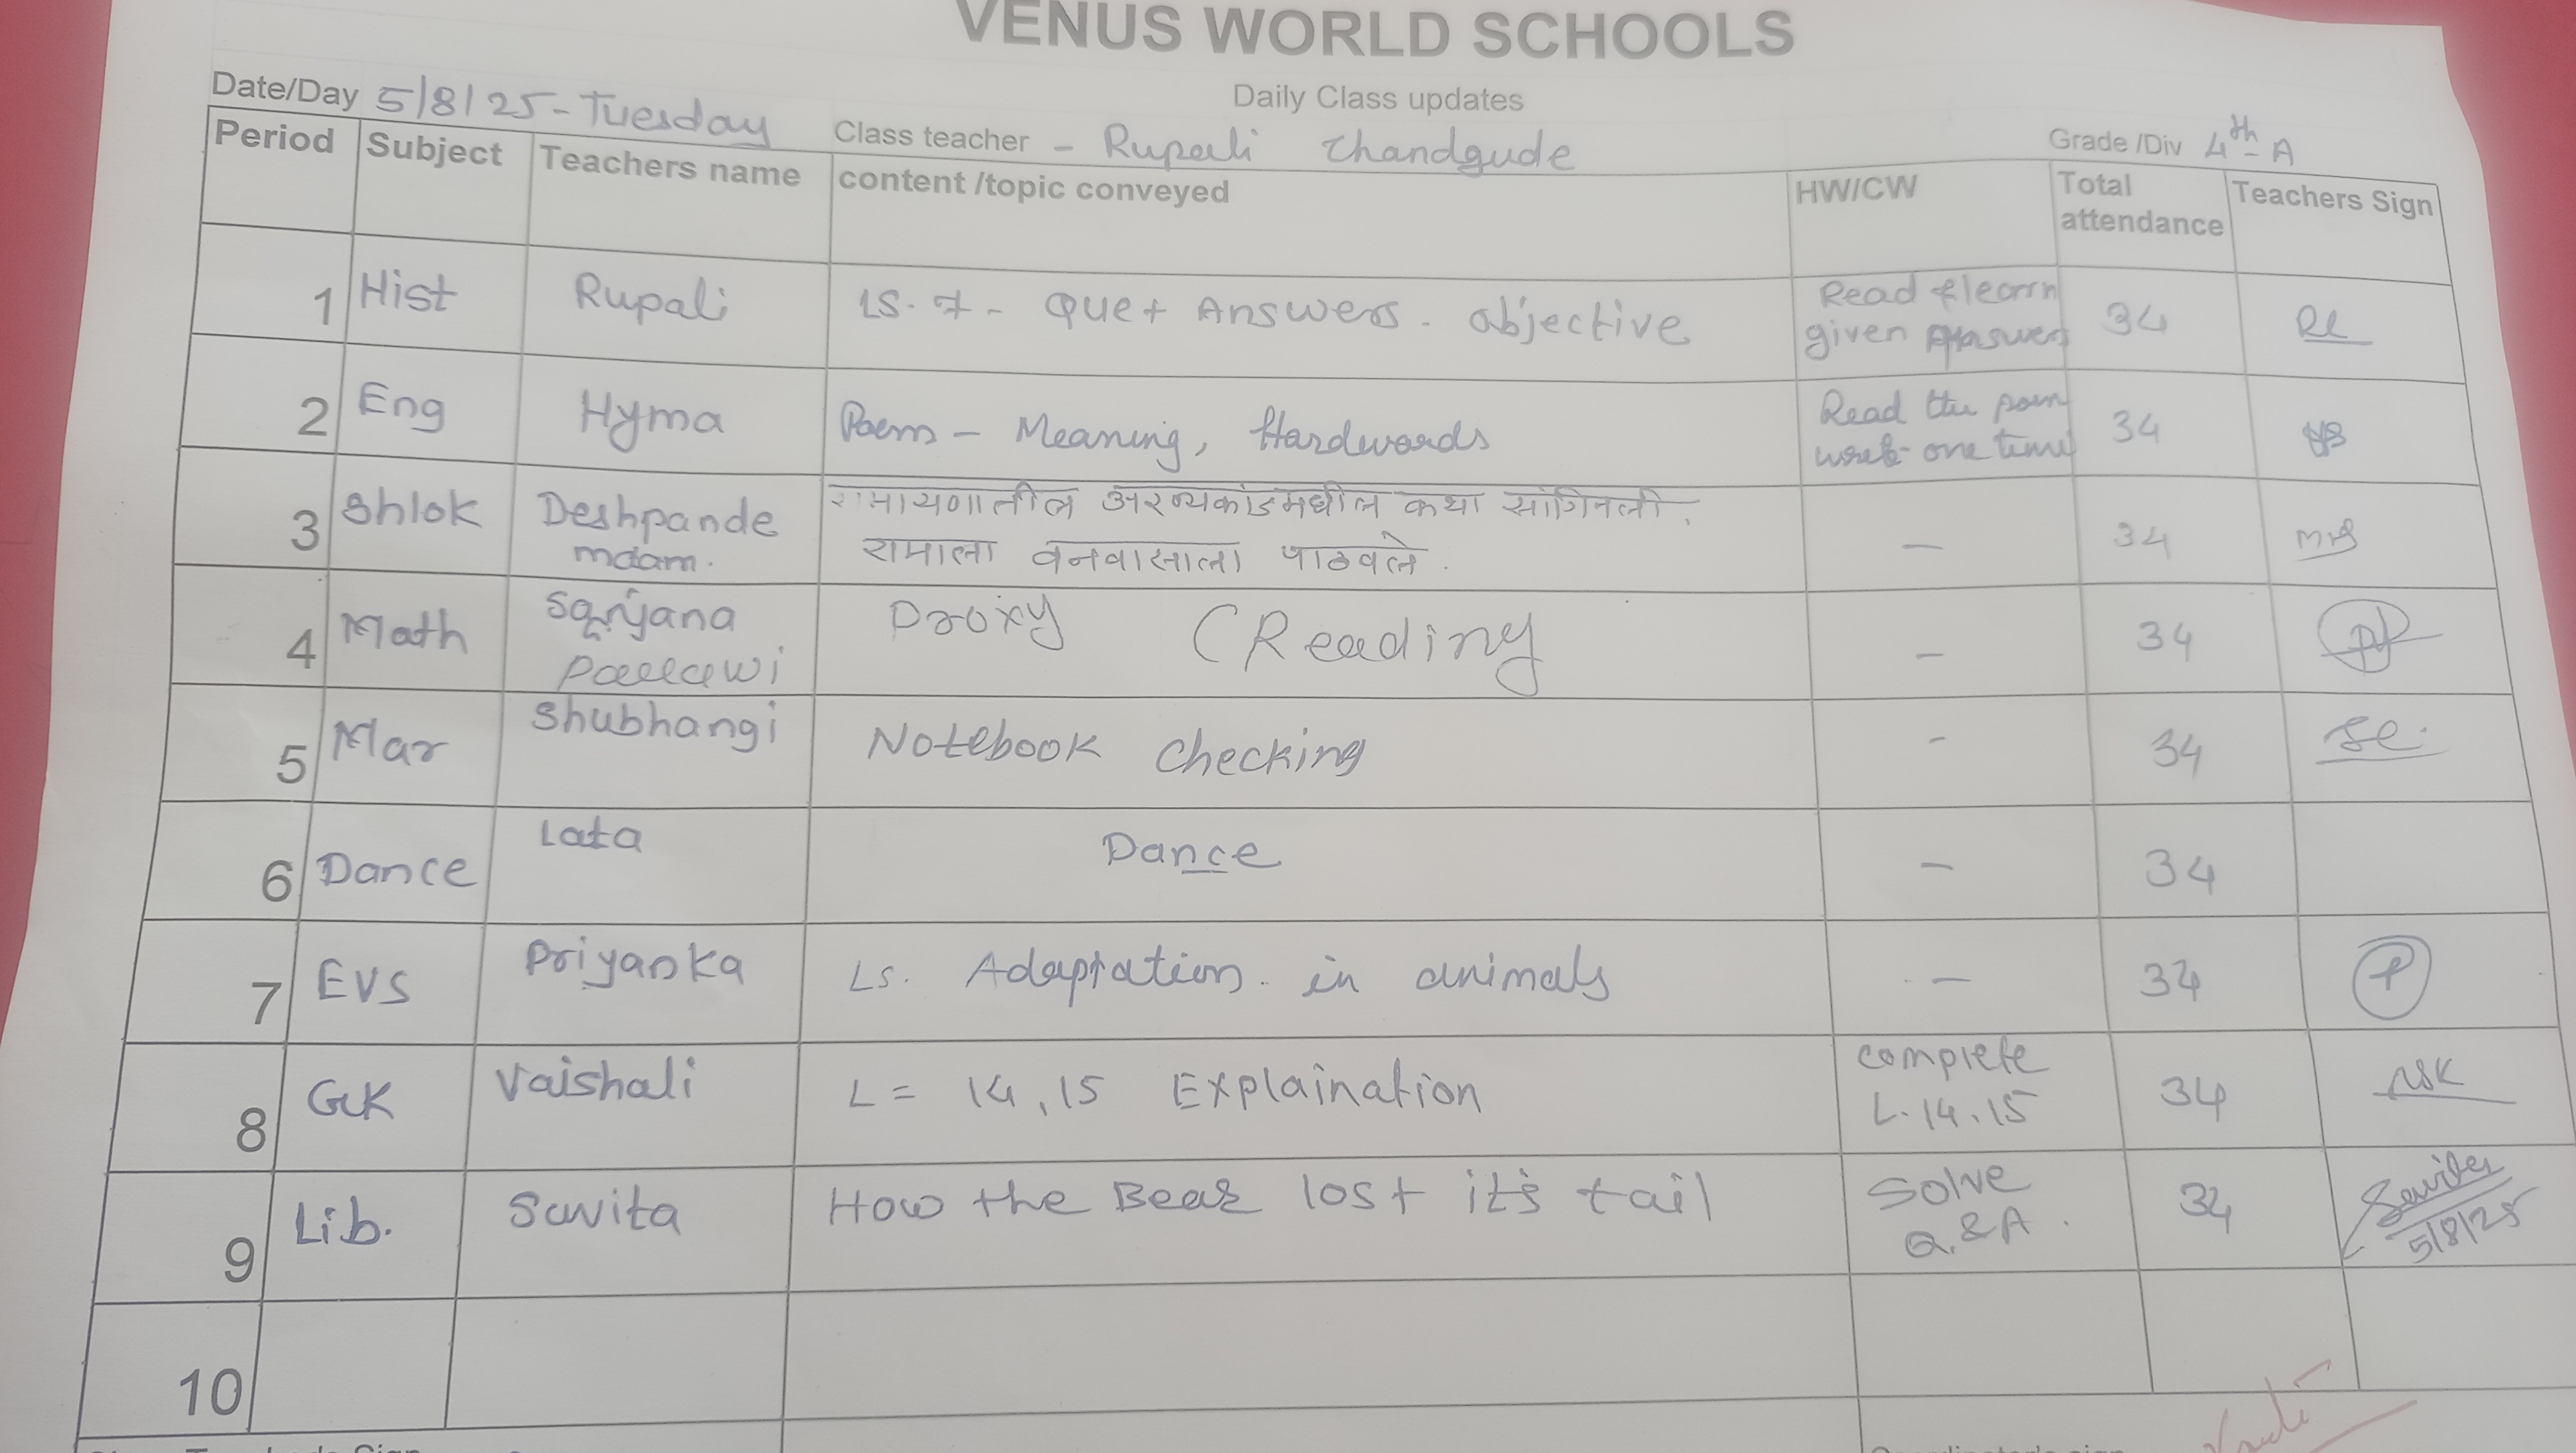 VENUS WORLD SCHOOLS
Daily Class updates
Date/Day 5/8/25 - Tuesday Class teacher - Rupali Chandgude Grade /Div 4th - A
Period Subject Teachers name content /topic conveyed HW/CW Total attendance Teachers Sign
1 Hist Rupali LS. 7 - Que + Answers. objective Read & learn given answer 34
2 Eng Hyma Poem - Meaning, Hardwords Read the poem write one time 34
3 Shlok Deshpande mdam. रामायणातील अरण्यकांडमधील कथा सांगितली. - 34
रामाला वनवासाला पाठवले.
4 Math Sanjana Pallawi Proxy (Reading - 34
5 Mar Shubhangi Notebook checking - 34
6 Dance Lata Dance - 34
7 EVS Priyanka Ls. Adaptation. in animals - 34
8 GK Vaishali L = 14, 15 Explaination complete L. 14. 15 34
9 Lib. Savita How the Bear lost it's tail Solve Q. & A. 34 Savita 5/8/25
10